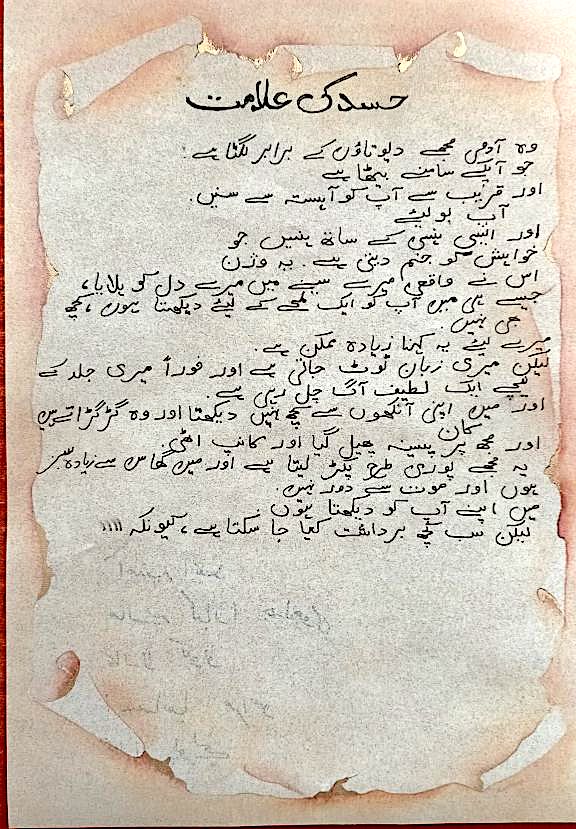 حسد کی علامت
وہ آدمی مجھے دیوتاؤں کے برابر لگتا ہے
جو آپکے سامنے بیٹھا ہے
اور قریب سے آپ کو آہستہ سے سنیں.
آپ بولیئے
اور ایسی ہنسی کے ساتھ ہنسیں جو
خواہش کو جنم دیتی ہے. یہ وژن
اس نے واقعی میرے سینے میں میرے دل کو ہلایا،
جیسے ہی میں آپ کو ایک لمحے کے لیئے دیکھتا ہوں، کچھ
بھی نہیں.
میرے لیئے یہ کہنا زیادہ ممکن ہے.
لیکن میری زبان ٹوٹ جاتی ہے اور فوراً میری جلد کے
نیچے ایک لطیف آگ چل رہی ہے
اور میں اپنی آنکھوں سے کچھ نہیں دیکھتا اور وہ گڑگڑاتے ہیں
کان
اور مجھ پر پسینہ پھیل گیا اور کانپ اٹھی.
یہ مجھے پوری طرح پکڑ لیتا ہے اور میں گھاس سے زیادہ سبز
ہوں اور موت سے دور نہیں.
میں اپنے آپ کو دیکھتا ہوں.
لیکن سب کچھ برداشت کیا جا سکتا ہے، کیونکہ ،،،،